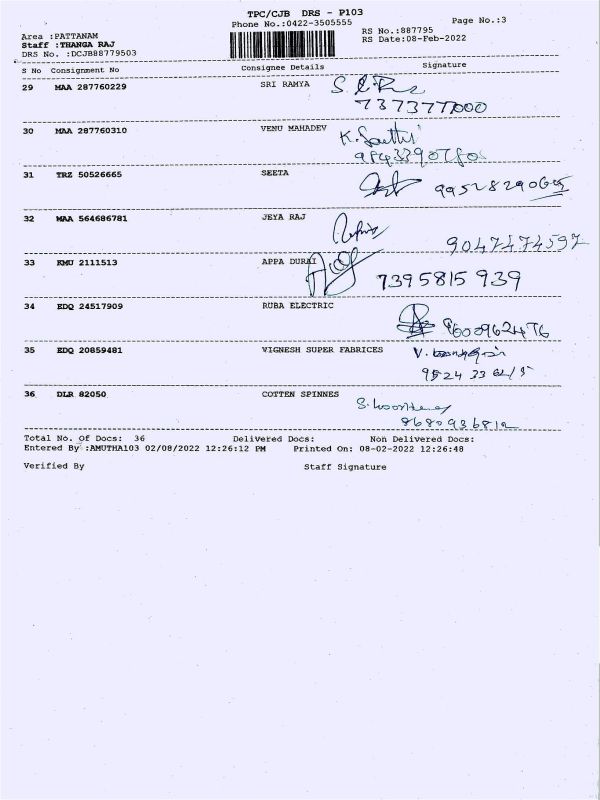 TPC/CJB DRS - P103
Phone No.:0422-3505555
Page No.:3
Area :PATTANAM
RS No.:887795
Staff :THANGA RAJ
RS Date:08-Feb-2022
DRS No. :DCJB88779503
S No Consignment No Consignee Details Signature
29 MAA 287760229 SRI RAMYA
7373777000
30 MAA 287760310 VENU MAHADEV
K.
31 TRZ 50526665 SEETA
9952829065
32 MAA 564686781 JEYA RAJ
9047474597
33 KMU 2111513 APPA DURAI
7395815939
34 EDQ 24517909 RUBA ELECTRIC
9600962476
35 EDQ 20859481 VIGNESH SUPER FABRICES V.
36 DLR 82050 COTTEN SPINNES
S.
8680936812
Total No. Of Docs: 36 Delivered Docs: Non Delivered Docs:
Entered By :AMUTHA103 02/08/2022 12:26:12 PM Printed On: 08-02-2022 12:26:48
Verified By Staff Signature